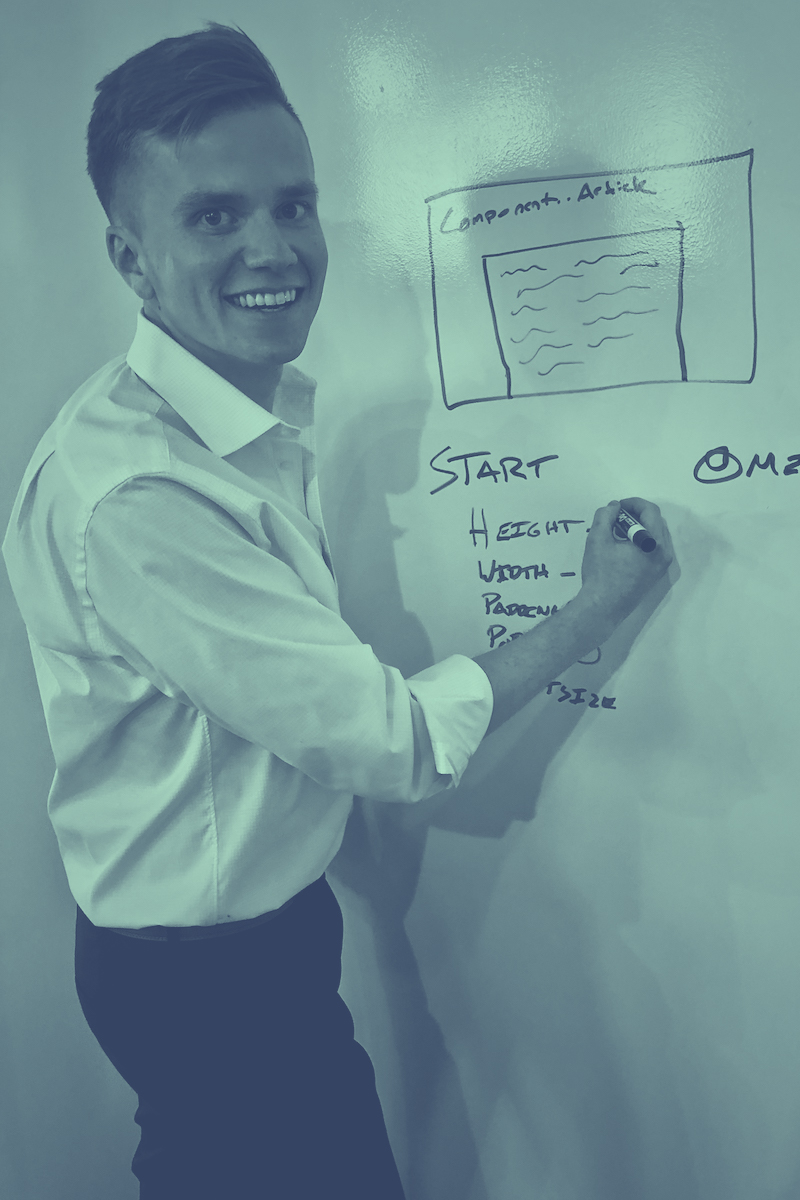 Components.Article
START
@ME
HEIGHT -
WIDTH -
PADDIN
TSIZE